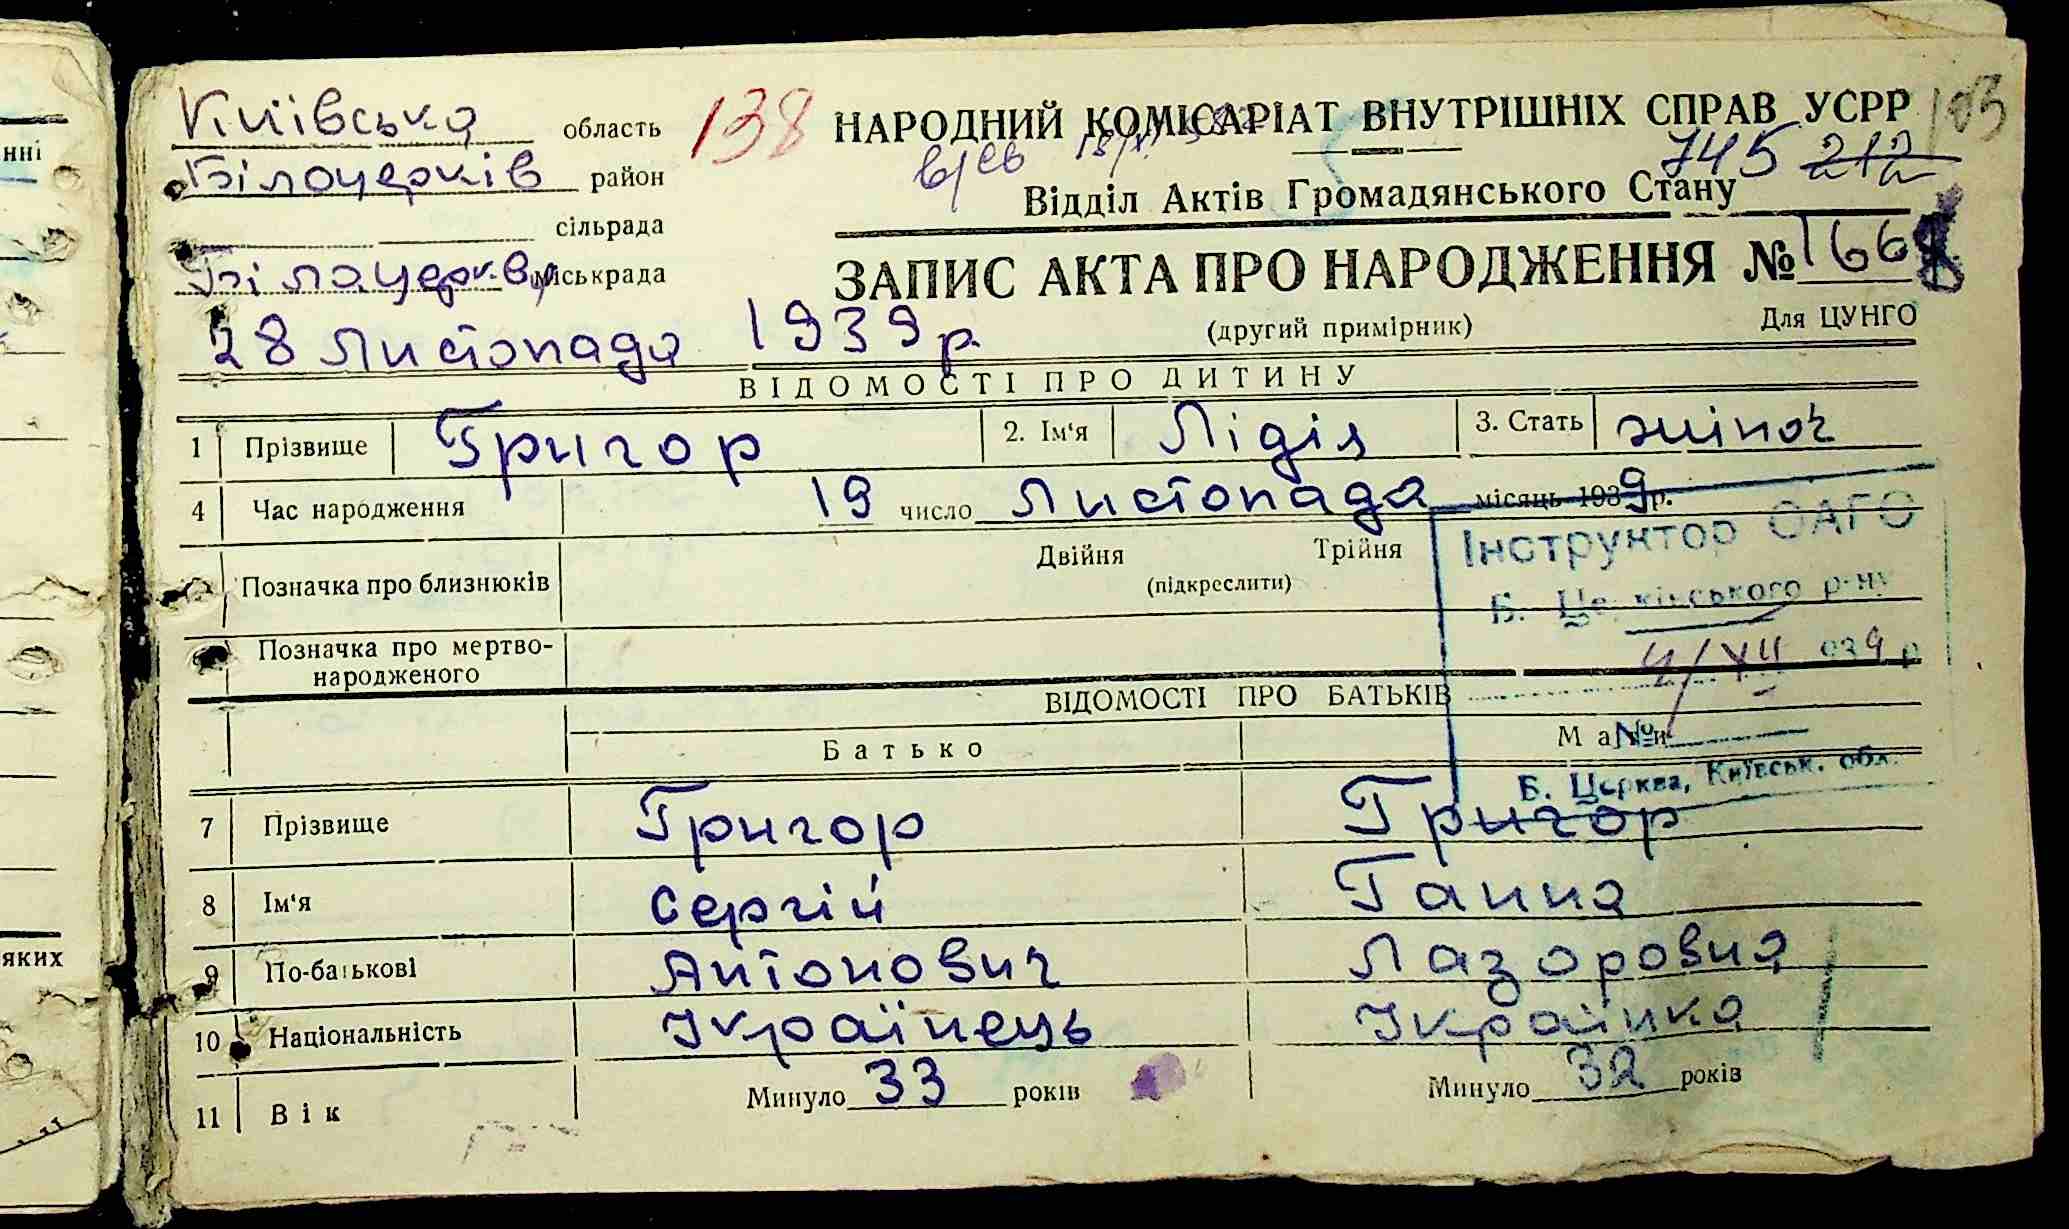 нні
яких
Київська область
138
НАРОДНИЙ КОМІСАРІАТ ВНУТРІШНІХ СПРАВ УСРР
103
Білоцерків район
745 212
Відділ Актів Громадянського Стану
сільрада
Білоцеркв міськрада
ЗАПИС АКТА ПРО НАРОДЖЕННЯ № 1668
28 Листопада 1939 р.
(другий примірник)
Для ЦУНГО
ВІДОМОСТІ ПРО ДИТИНУ
1 Прізвище Григор 2. Ім'я Лідія 3. Стать жіноч
4 Час народження 19 число Листопада місяць 1939 р.
Позначка про близнюків Двійня Трійня
(підкреслити)
Інструктор ОАГО
Б. Церківського р-ну
4/XII 1939 р
№
Б. Церква, Київськ. обл.
Позначка про мертво-
народженого
ВІДОМОСТІ ПРО БАТЬКІВ
Батько Мати
7 Прізвище Григор Григор
8 Ім'я Сергій Ганна
9 По-батькові Антонович Лазоровна
10 Національність Українець Українка
11 Вік Минуло 33 років Минуло 32 років